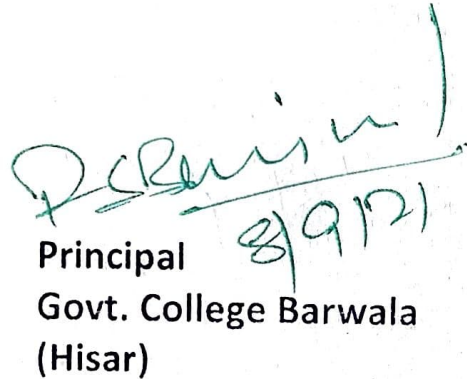 8/9/21
Principal
Govt. College Barwala
(Hisar)